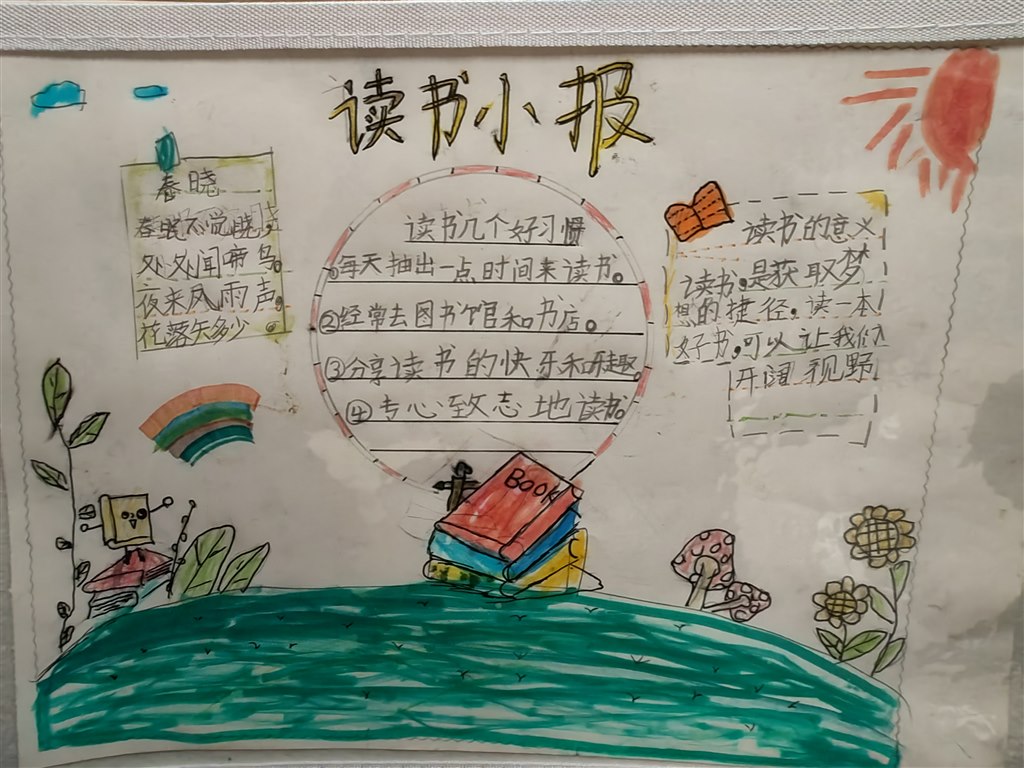 读书小报
春晓
春眠不觉晓,
处处闻啼鸟。
夜来风雨声,
花落知多少。
读书几个好习惯
每天抽出一点时间来读书。
②经常去图书馆和书店。
③分享读书的快乐和乐趣。
④专心致志地读书。
读书的意义
读书,是获取梦
想的捷径,读一本
好书,可以让我们
开阔视野
BOOK